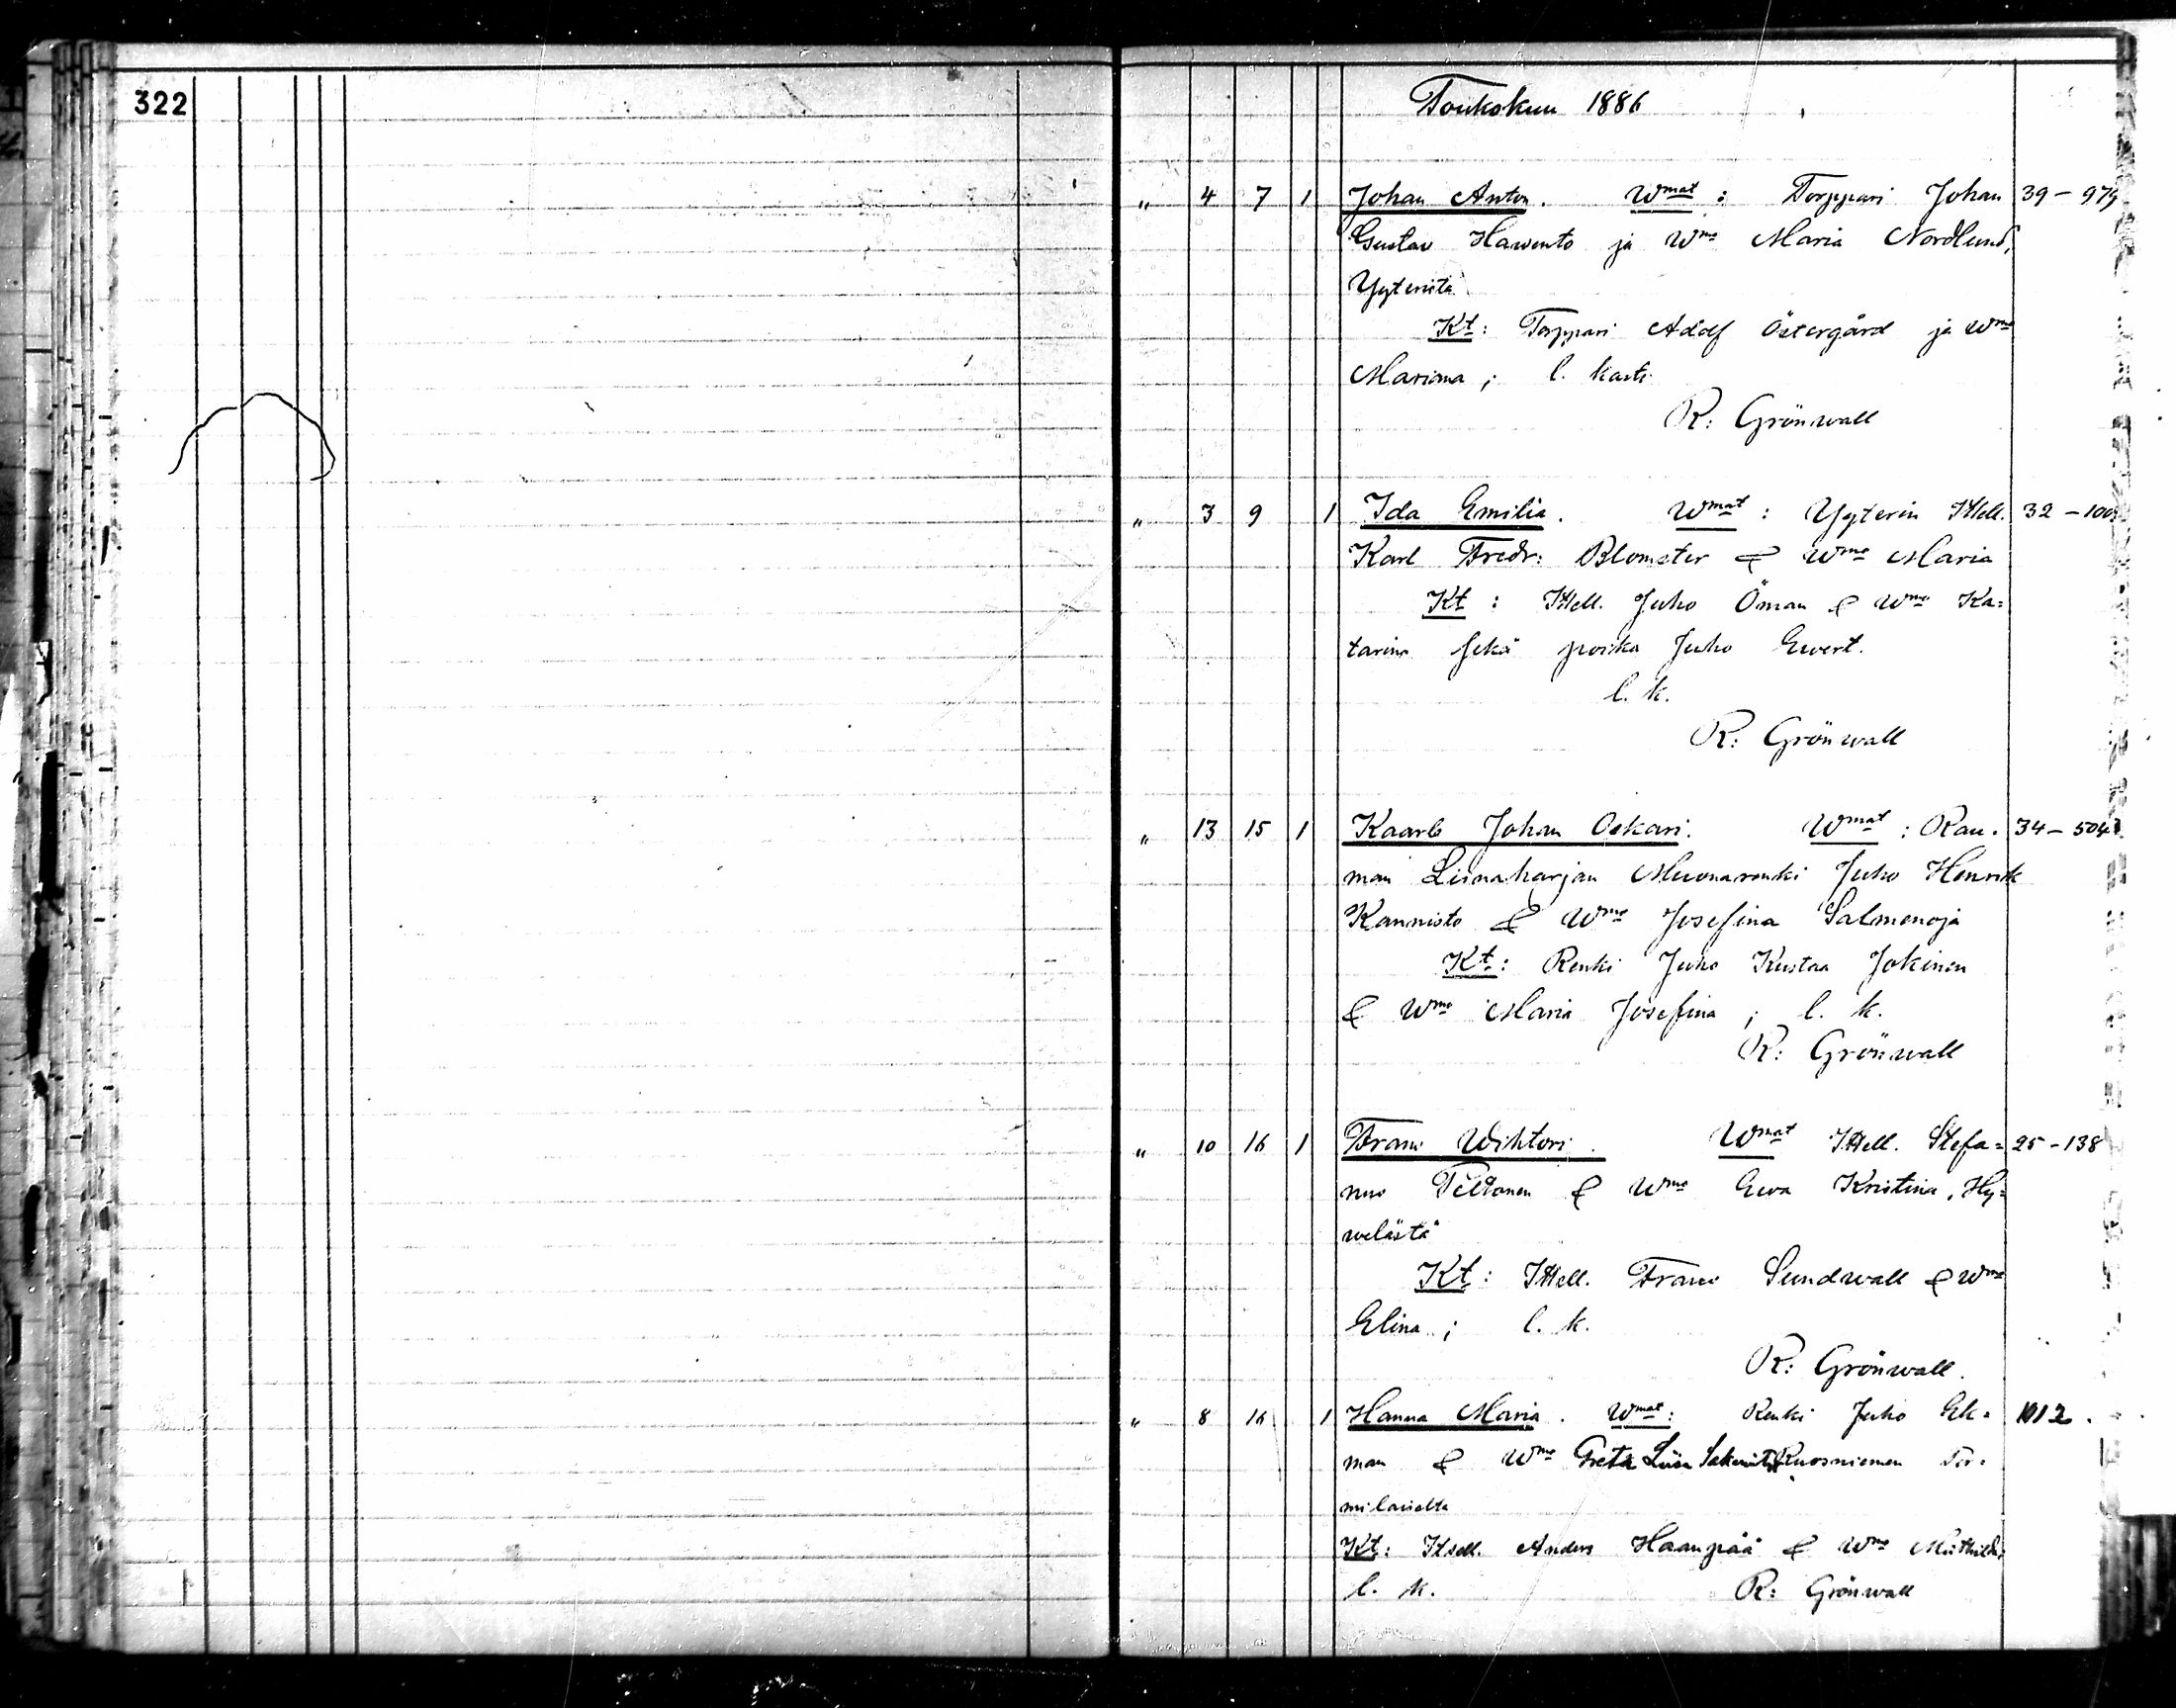 322
Toukokuu 1886
" 4 7 1 Johan Anton. Wmat: Torppari Johan 39 - 979
Gustav Hawento ja Wmo Maria Nordlund,
Yyteristä
Kt: Torppari Adolf Östergård ja Wmo
Mariana; l. kaste
R: Grönwall
" 3 9 1 Ida Emilia. Wmat: Yyterin Itsell. 32 -
Karl Fredr: Blomster & Wmo Maria
Kt: Itsell. Juho Öman & Wmo Ka=
tarina sekä poika Juho Ewert.
l. k.
R: Grönwall
" 13 15 1 Kaarlo Johan Oskari. Wmat: Rau=
34 - 504
man Linnaharjan Muonarenki Juho Henrik
Kannisto & Wmo Josefina Salmenoja
Kt: Renki Juho Kustaa Jokinen
& Wmo Maria Josefina; l. k.
R: Grönwall
" 10 16 1 Frans Wihtori. Wmat Itsell. Stefa= 25 - 138
nus & Wmo Ewa Kristina, Hy=
welästä
Kt: Itsell. Frans Sundwall & Wmo
Elina; l. k.
R: Grönwall.
" 8 16 1 Hanna Maria. Wmat: Renki Juho Ek= 1012.
man & Wmo Greta Liisa Kuosniemen Tor=
milaiselta
Kt: Itsell. Anders Haanpää & Wmo Mathilda;
l. k. R: Grönwall